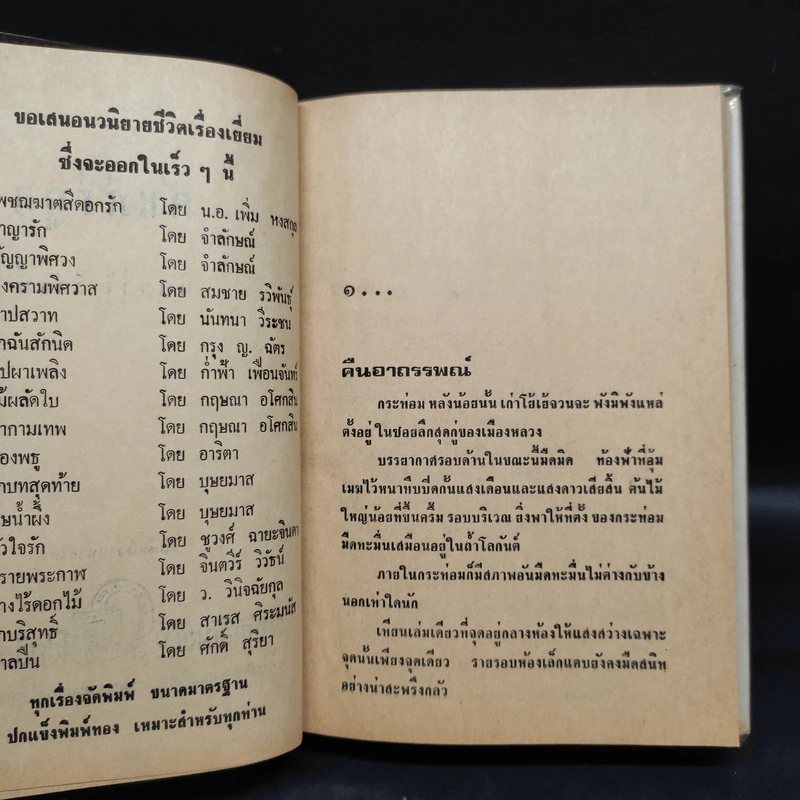 ขอเสนอนวนิยายชีวิตเรื่องเยี่ยม
ซึ่งจะออกในเร็ว ๆ นี้
พชฌฆาตสีดอกรัก โดย น.อ. เพิ่ม หงสกุล
าญารัก โดย จำลักษณ์
ัญญาพิศวง โดย จำลักษณ์
งครามพิศวาส โดย สมชาย รวิพันธุ์
าปสวาท โดย นันทนา วีระชน
กฉันสักนิด โดย กรุง ญ. ฉัตร
ปผาเพลิง โดย ก่ำฟ้า เพื่อนจันทร์
ม้ผลัดใบ โดย กฤษณา อโศกสิน
ากามเทพ โดย กฤษณา อโศกสิน
องพธู โดย อาริตา
กบทสุดท้าย โดย บุษยมาส
ษน้ำผึ้ง โดย บุษยมาส
ัวใจรัก โดย ชูวงศ์ ฉายะจินดา
รายพระกาฬ โดย จินตวีร์ วิวัธน์
างไร้ดอกไม้ โดย ว. วินิจฉัยกุล
กบริสุทธิ์ โดย สาเรส ศิระมนัส
าลปืน โดย ศักดิ์ สุริยา
ทุกเรื่องจัดพิมพ์ ขนาดมาตรฐาน
ปกแข็งพิมพ์ทอง เหมาะสำหรับทุกท่าน
๑...
คืนอาถรรพณ์
กระท่อม หลังน้อยนั้น เก่าโย้เย้จวนจะ พังมิพังแหล่
ตั้งอยู่ ในซอยลึกสุดกู่ของเมืองหลวง
บรรยากาศรอบด้านในขณะนี้มืดมิด ท้องฟ้าที่อุ้ม
เมฆไว้หนาทึบปิดกั้นแสงเดือนและแสงดาวเสียสิ้น ต้นไม้
ใหญ่น้อยที่ขึ้นครึ้ม รอบบริเวณ ยิ่งพาให้ที่ตั้ง ของกระท่อม
มืดทะมึนเสมือนอยู่ในถ้ำโลกันต์
ภายในกระท่อมก็มีสภาพอันมืดทะมึนไม่ต่างกับข้าง
นอกเท่าใดนัก
เทียนเล่มเดียวที่จุดอยู่กลางห้องให้แสงสว่างเฉพาะ
จุดนั้นเพียงจุดเดียว รายรอบห้องเล็กแคบยังคงมืดสนิท
อย่างน่าสะพรึงกลัว